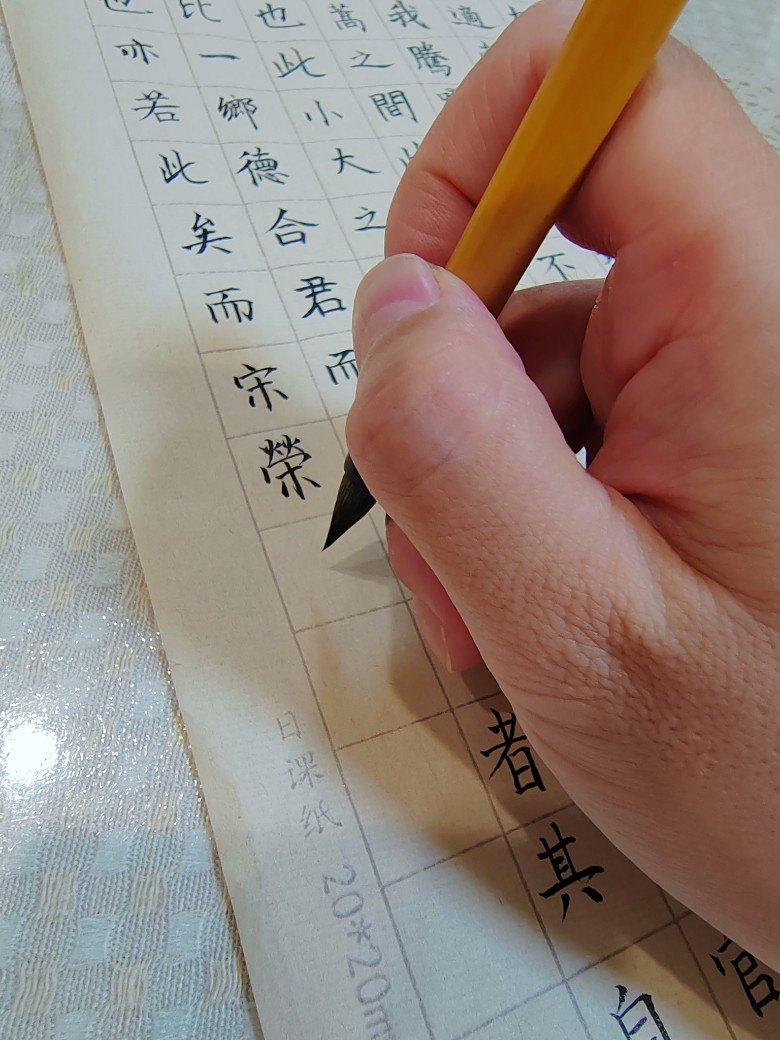 適
我騰不
蒿之間
也此小大之官
比一鄉德合君而者其自
也亦若此矣而宋榮
日课纸 20*20m